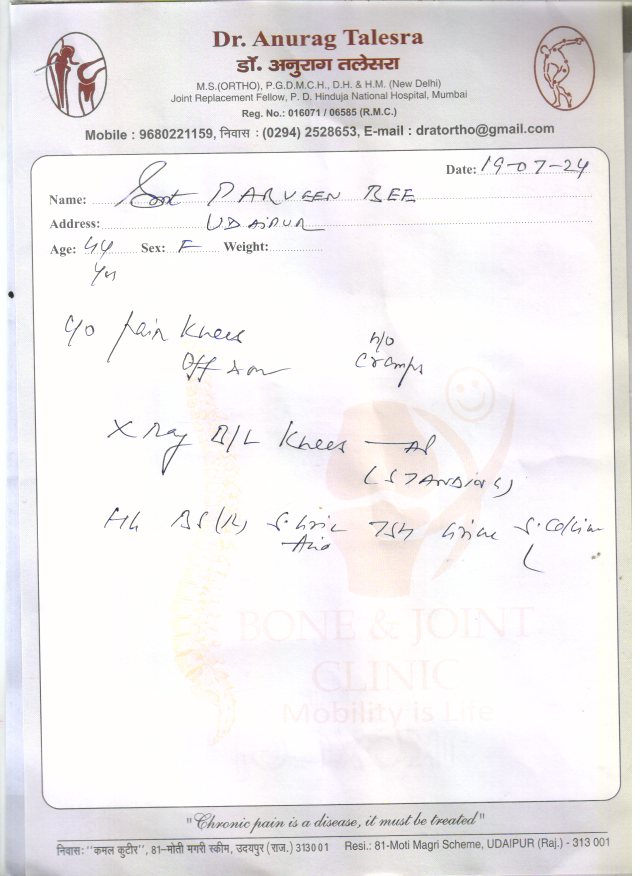 Dr. Anurag Talesra
डॉ. अनुराग तलेसरा
M.S.(ORTHO), P.G.D.M.C.H., D.H. & H.M. (New Delhi)
Joint Replacement Fellow, P. D. Hinduja National Hospital, Mumbai
Reg. No.: 016071 / 06585 (R.M.C.)
Mobile : 9680221159, निवास : (0294) 2528653, E-mail : dratortho@gmail.com
Date: 19-07-24
Name: Smt PARVEEN BEE
Address: UDAIPUR
Age: 44 Sex: F Weight:
Yrs
c/o pain Knees h/o
Off & on Cramps
X Ray B/L Knees AP
(STANDING)
Hb BS(R) S. Uric TSH Urine S. Calcium
Acid
BONE & JOINT
CLINIC
Mobility is Life
"Chronic pain is a disease, it must be treated"
निवास: "कमल कुटीर", 81-मोती मगरी स्कीम, उदयपुर (राज.) 313001 Resi.: 81-Moti Magri Scheme, UDAIPUR (Raj.) - 313 001